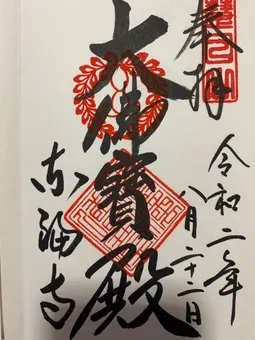 慧日山
奉拝
令和二年
八月二十二日
大佛寶殿
東福寺